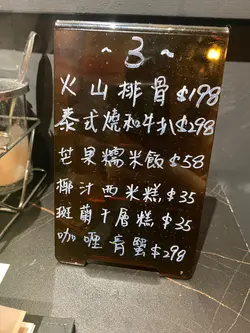 ~3~
火山排骨$198
泰式燒和牛扒$298
芒果糯米飯$58
椰汁西米糕$35
斑蘭千層糕$35
咖喱青蟹$298